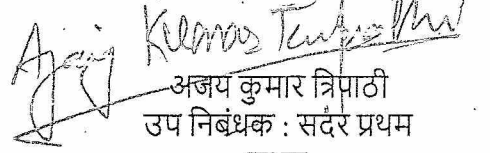 Ajay Kumar Tripathi
अजय कुमार त्रिपाठी
उप निबंधक : सदर प्रथम